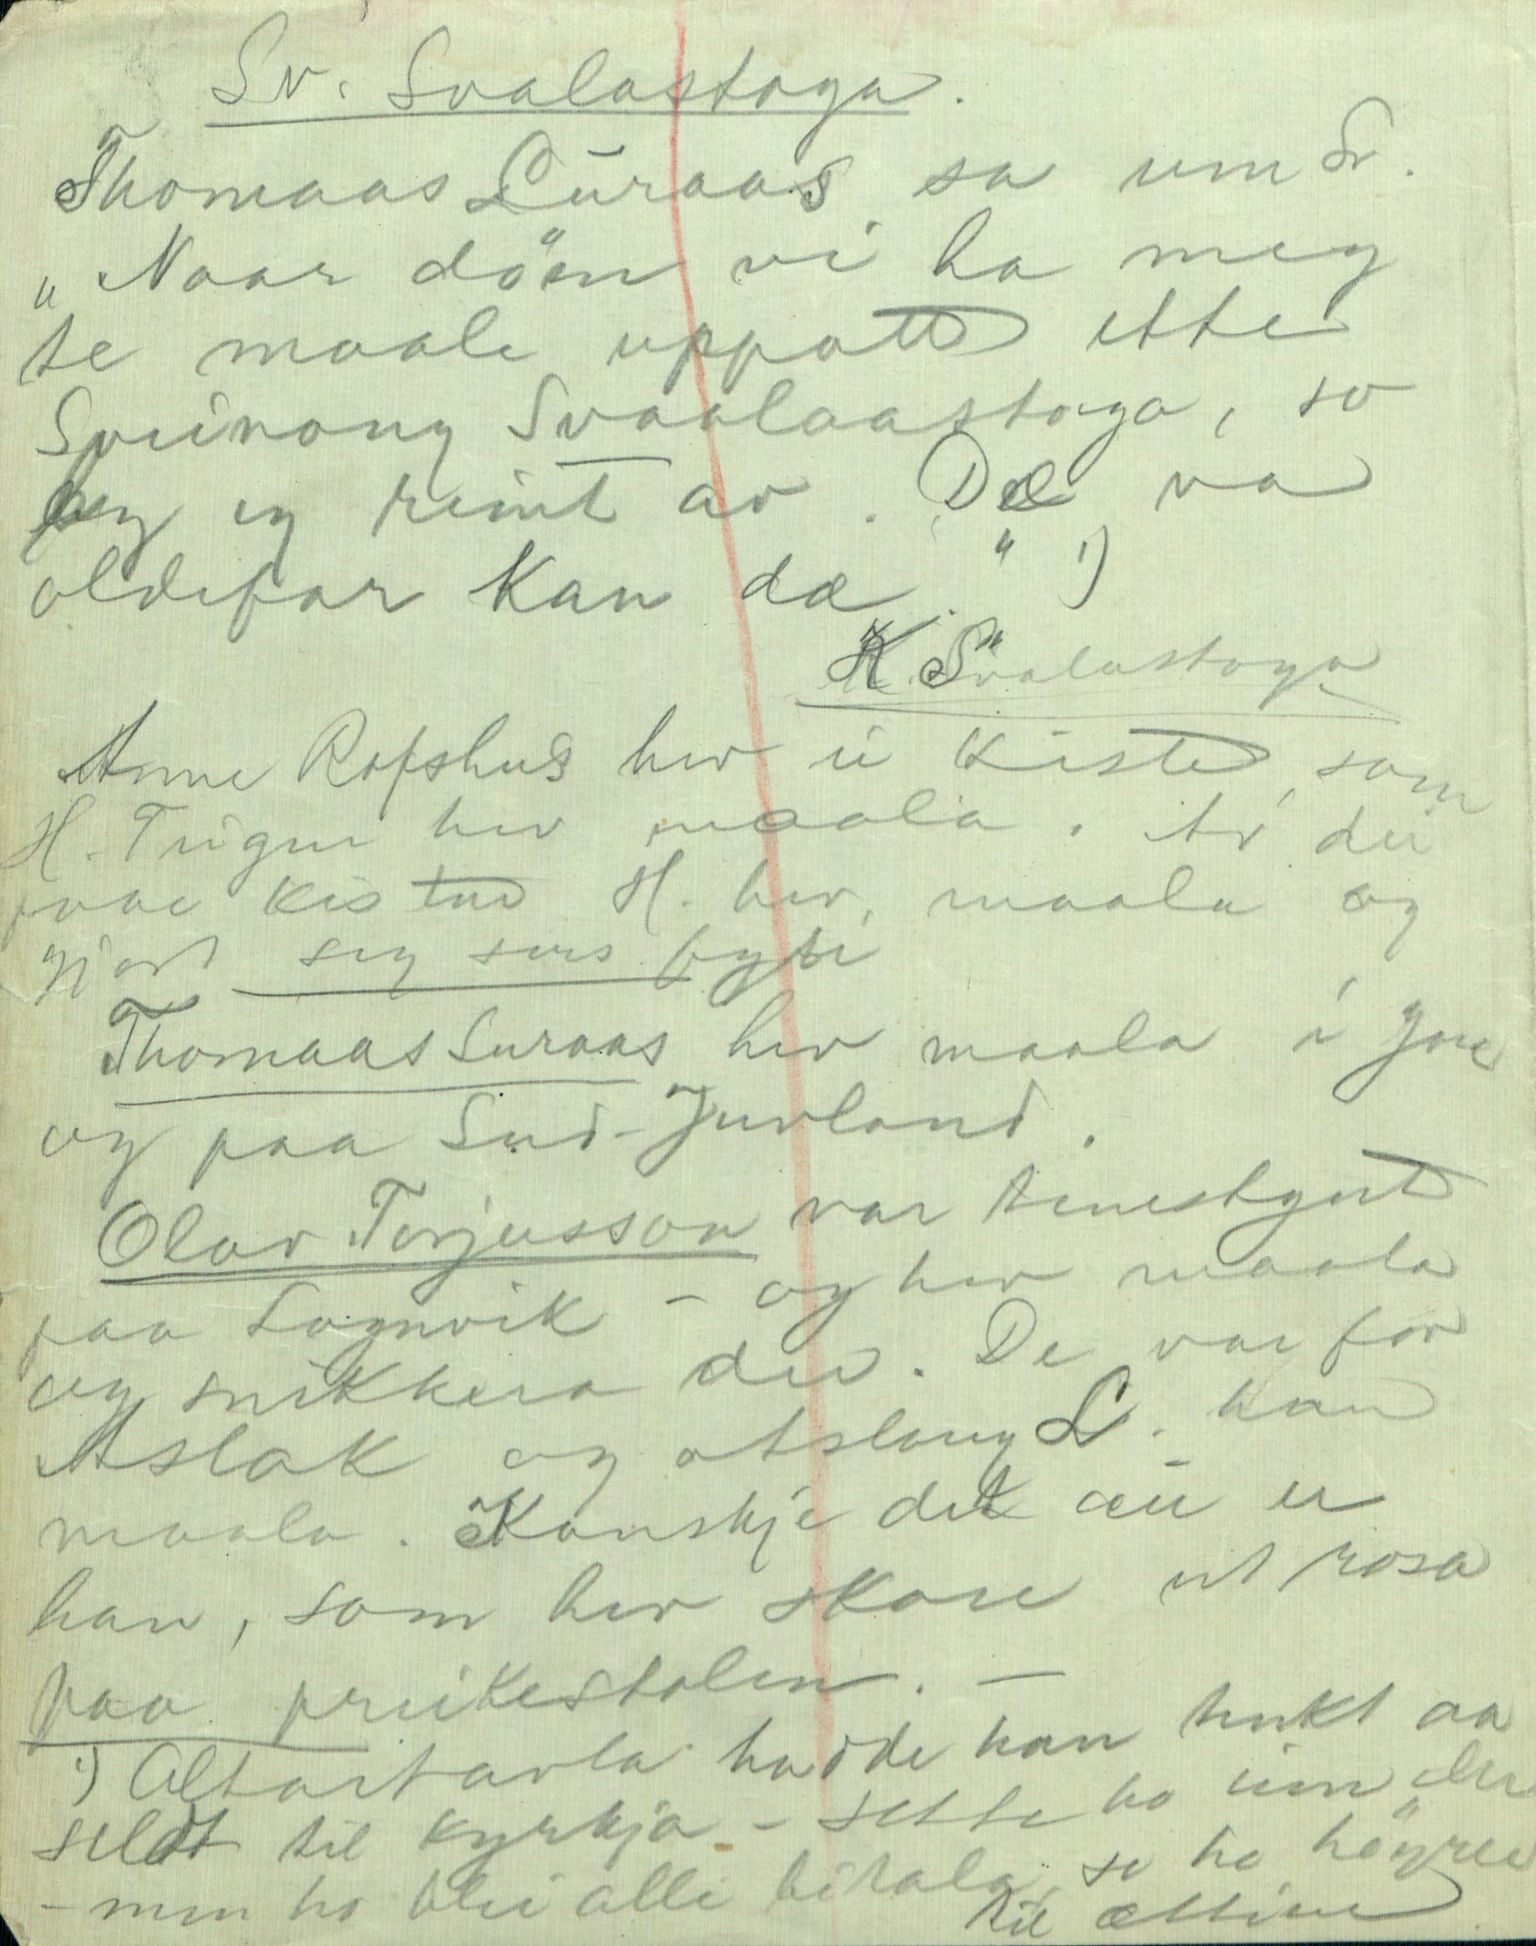 Sv. Svalastoga.
Thomaas Luraas sa um Sv.
„Naar döm vi ha meg
te maale uppatt etter
Sveinang Svaalaastoga, so
bey eg reint av. Dæ va
oldefar kan dæ" 1)
K. Svalastoga
Anne Rofshus hev ei kiste som
H. hev maala. Av dei
kistur H. hev maala og
gjort seg sers
Thomaas Luraas hev maala i
og paa Sud-Jurland.
Olav Torjusson var
paa Sognvik – og hev maala
og snikkera der. De var før
Aslak og L. kan
maala. Kanskje det au er
han, som hev skore ut rosa
paa preikestolen. –
1) Altartavla hadde han tenkt aa
seldt til kyrkja – sette ho inn der
– men ho blei alli betala, so ho höyrer
til ættine